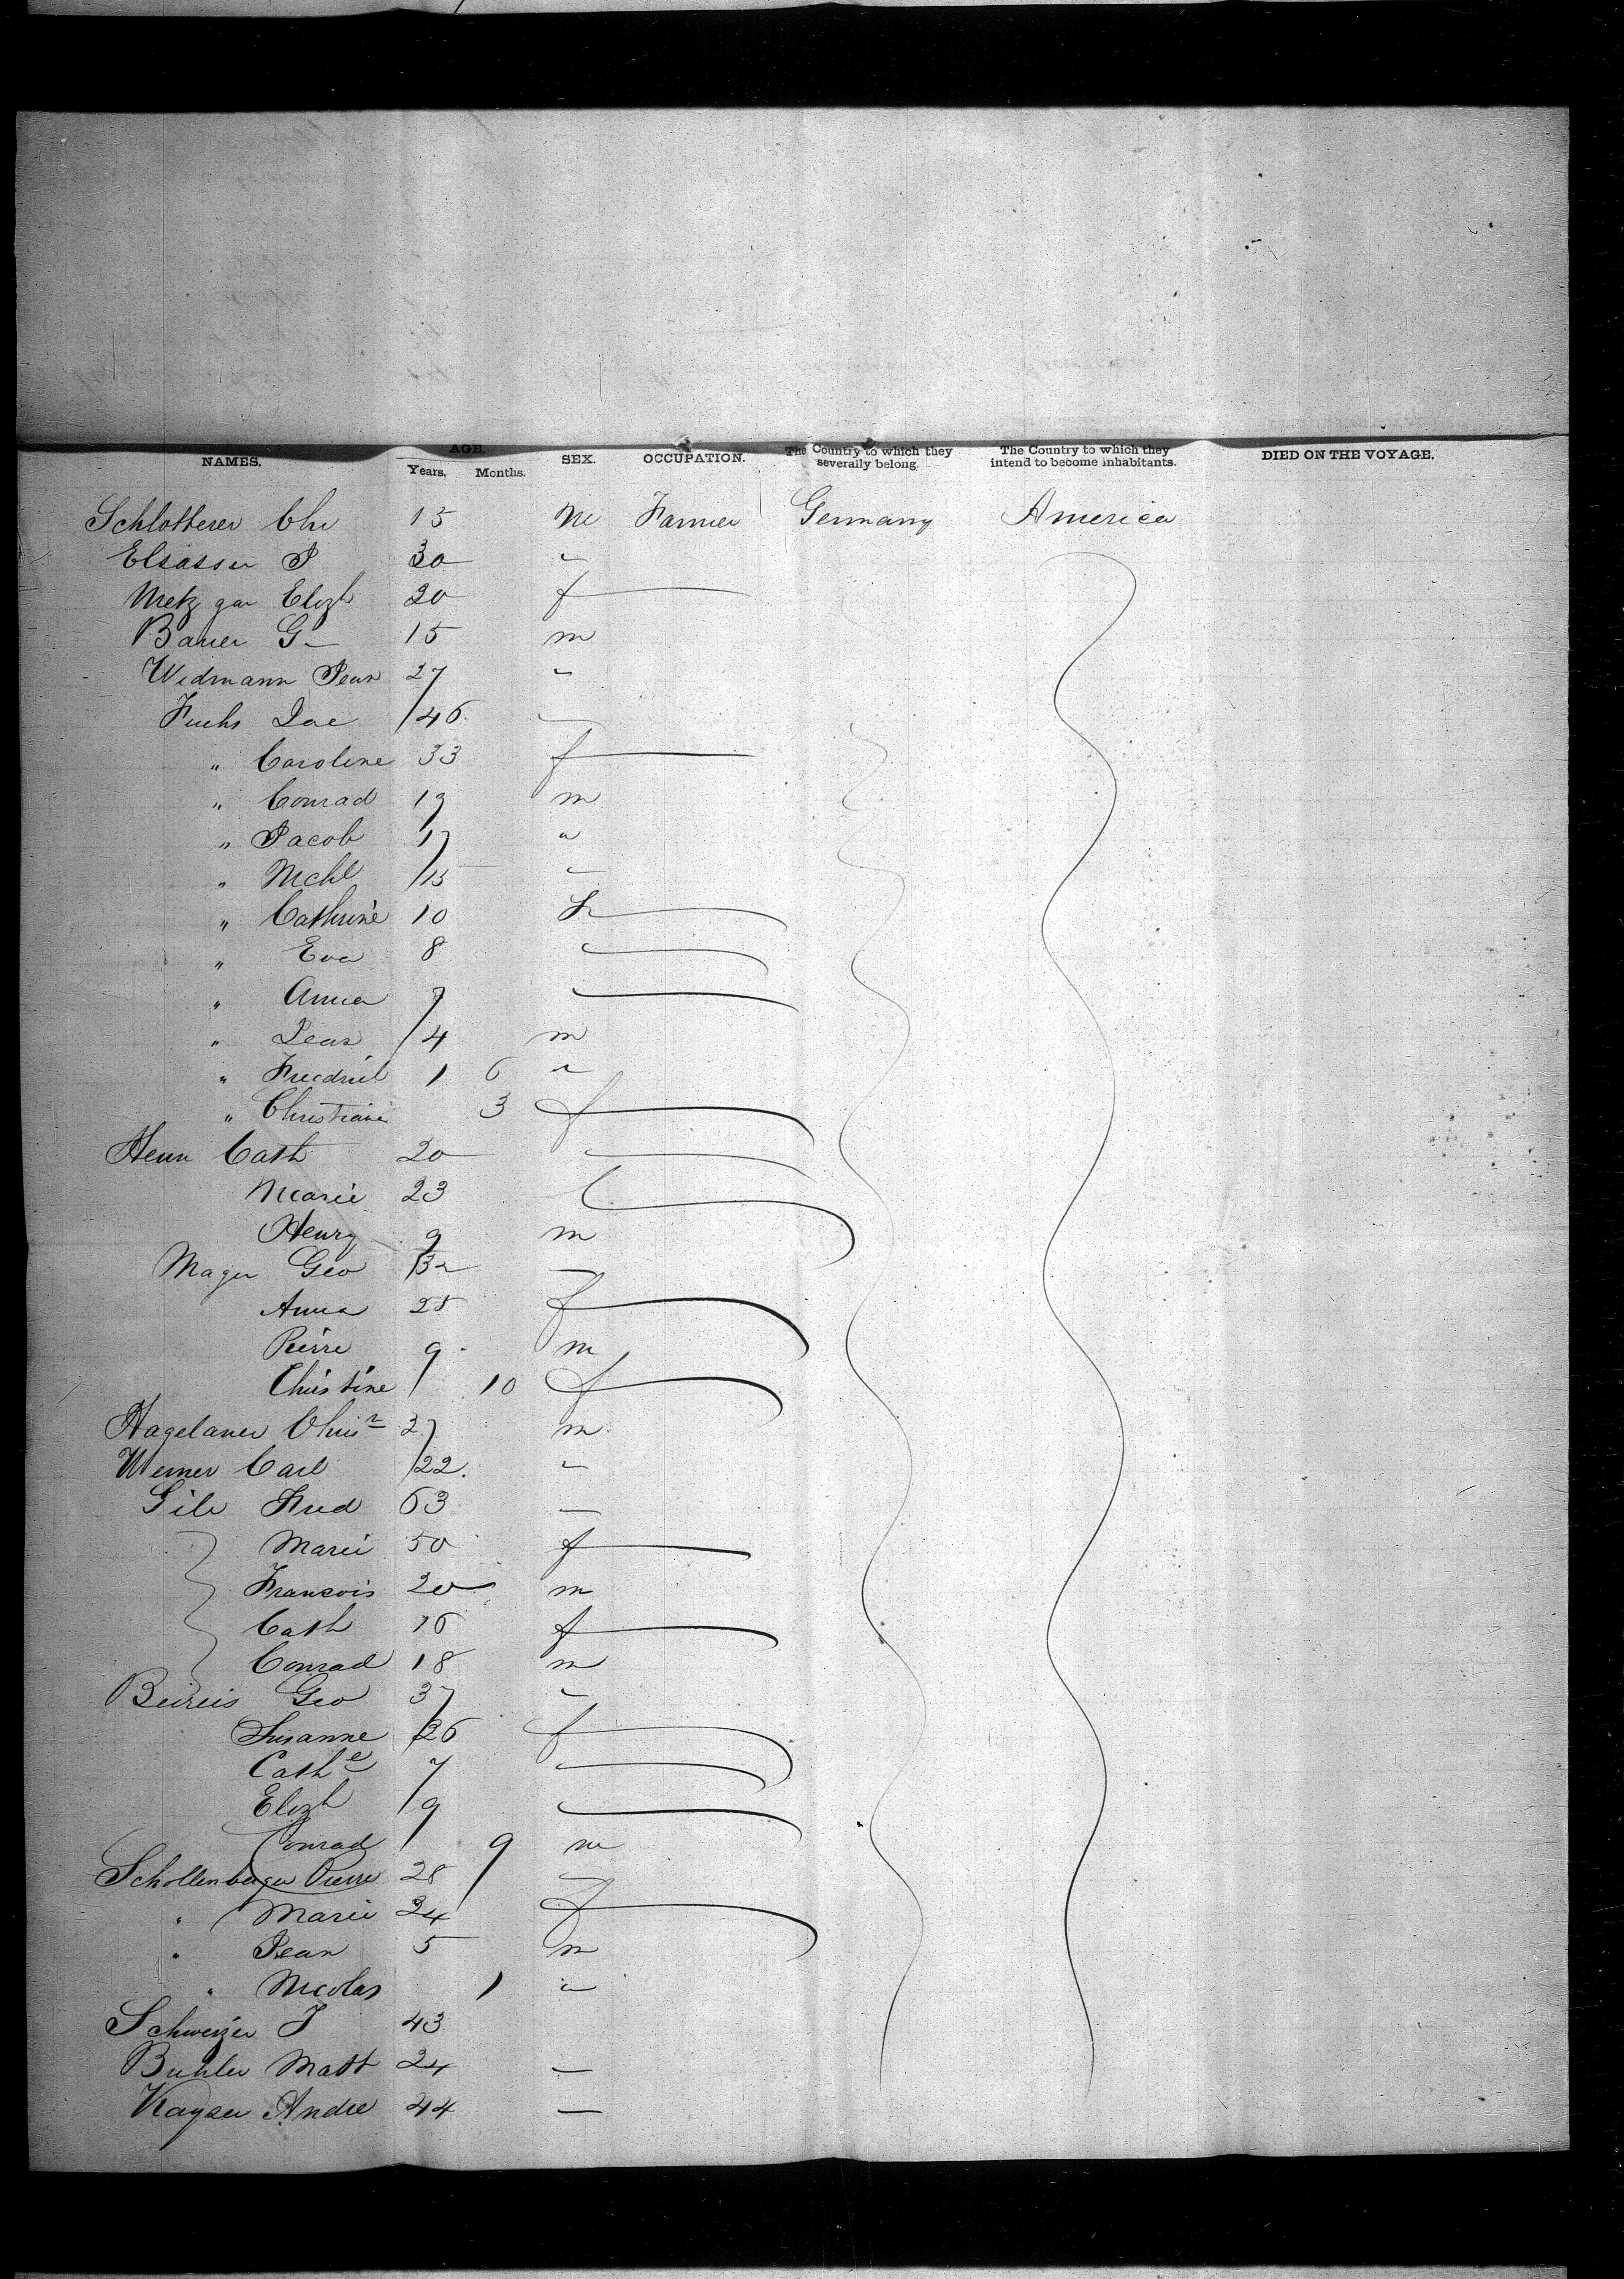 NAMES. AGE. Years. Months. SEX. OCCUPATION. The Country to which they severally belong. The Country to which they intend to become inhabitants. DIED ON THE VOYAGE.
Schlotterer Chr 15 m Farmer Germany America
Elsasser P 30 "
Metzgar Elizh 20 f
Bauer G 15 m
Widmann Jean 27 "
Fuchs Jac 46
" Caroline 33 f
" Conrad 19 m
" Jacob 17 "
" Mchl 15
" Cathrine 10 f
" Eva 8
" Anna 7
" Jean 4 m
" Friedrich 1 6 "
" Christiane 3 f
Henn Cath 20
Marie 23
Henry 9 m
Mager Geo 32
Anna 25 f
Pierre 9 m
Christine 10 f
Hagelauer Chris 27 m
Werner Carl 22. "
Fred 63
Marie 50 f
Francois 20 m
Cath 16 f
Conrad 18 m
Beireis Geo 37 "
Susanne 36 f
Cathe 7
Elizh 9
Conrad 9 m
Schollenberger Pierre 28
" Marie 24 f
" Jean 5 m
" Nicolas 1 "
Schweizer J 43
Buhler Matt 24
Kayser Andre 44